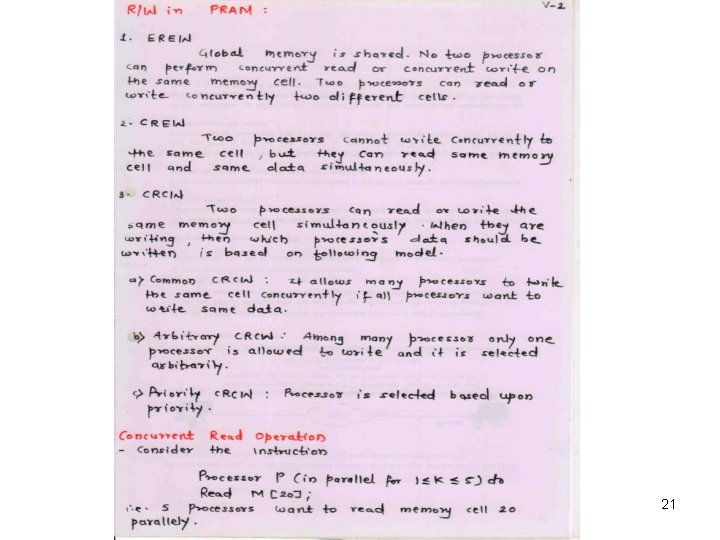 R/W in PRAM :
V-2
1. EREW
Global memory is shared. No two processor
can perform concurrent read or concurrent write on
the same memory cell. Two processors can read or
write concurrently two different cells.
2. CREW
Two processors cannot write concurrently to
the same cell, but they can read same memory
cell and same data simultaneously.
3. CRCW
Two processors can read or write the
same memory cell simultaneously. When they are
writing, then which processor's data should be
written is based on following model.
a) Common CRCW : It allows many processors to write
the same cell concurrently if all processors want to
write same data.
b) Arbitrary CRCW : Among many processor only one
processor is allowed to write and it is selected
arbitrarily.
c) Priority CRCW : Processor is selected based upon
priority.
Concurrent Read Operation
- Consider the instruction
Processor P (in parallel for 1≤K≤5) do
Read M[20];
i.e. 5 processors want to read memory cell 20
parallely.
21